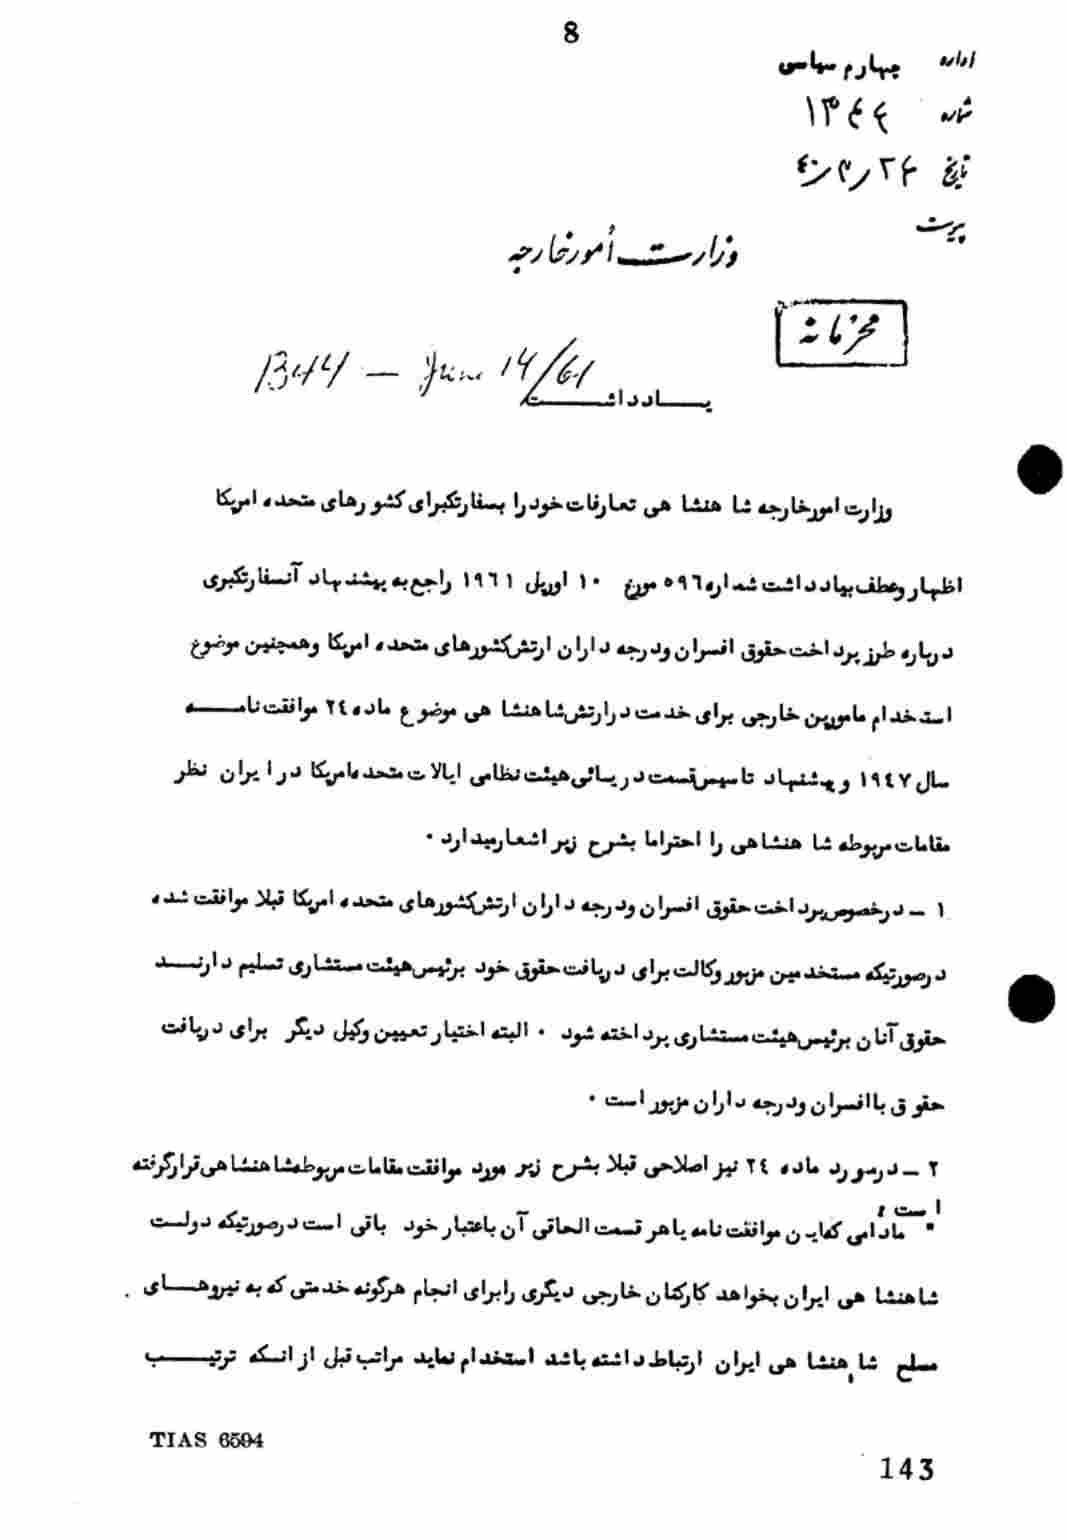 8
اداره چهارم سیاسی
شماره ۱۳۴۴
تاریخ ۲۴/۳/۴۰
پیوست
وزارت اُمورخارجه
محرمانه
1344 — June 14/61
یــــادداشــــت
وزارت امورخارجه شا هنشا هی تعارفات خود را بسفارتکبرای کشو رهای متحده امریکا
اظهار وعطف بیادداشت شماره ۵۹٦ مورخ ۱۰ اوریل ۱۹٦۱ راجع به پیشنهاد آنسفارتکبری
درباره طرز پرداخت حقوق افسران ودرجه داران ارتش کشورهای متحده امریکا وهمچنین موضوع
استخدام مامورین خارجی برای خدمت درارتش شاهنشا هی موضوع ماده ۲٤ موافقت نامــــه
سال ۱۹٤۷ و پیشنهاد تاسیس قسمت دریائی هیئت نظامی ایالات متحده امریکا در ایران نظر
مقامات مربوطه شا هنشاهی را احتراما بشرح زیر اشعارمیدارد ۰
۱ – درخصوص پرداخت حقوق افسران ودرجه داران ارتش کشورهای متحده امریکا قبلا موافقت شده
درصورتیکه مستخدمین مزبور وکالت برای دریافت حقوق خود برئیس هیئت مستشاری تسلیم دارنــد
حقوق آنان برئیس هیئت مستشاری پرداخته شود ۰ البته اختیار تعیین وکیل دیگر برای دریافت
حقو ق باافسران ودرجه داران مزبور است ۰
۲ – درمورد ماده ۲٤ نیز اصلاحی قبلا بشرح زیر مورد موافقت مقامات مربوطه شاهنشاهی قرارگرفته
است :
" مادامی که این موافقت نامه یاهر قسمت الحاقی آن باعتبار خود باقی است درصورتیکه دولــت
شاهنشا هی ایران بخواهد کارکنان خارجی دیگری رابرای انجام هرگونه خدمتی که به نیروهــای
مسلح شا هنشا هی ایران ارتباط داشته باشد استخدام نماید مراتب قبل از انکه ترتیــب
TIAS 6594
143